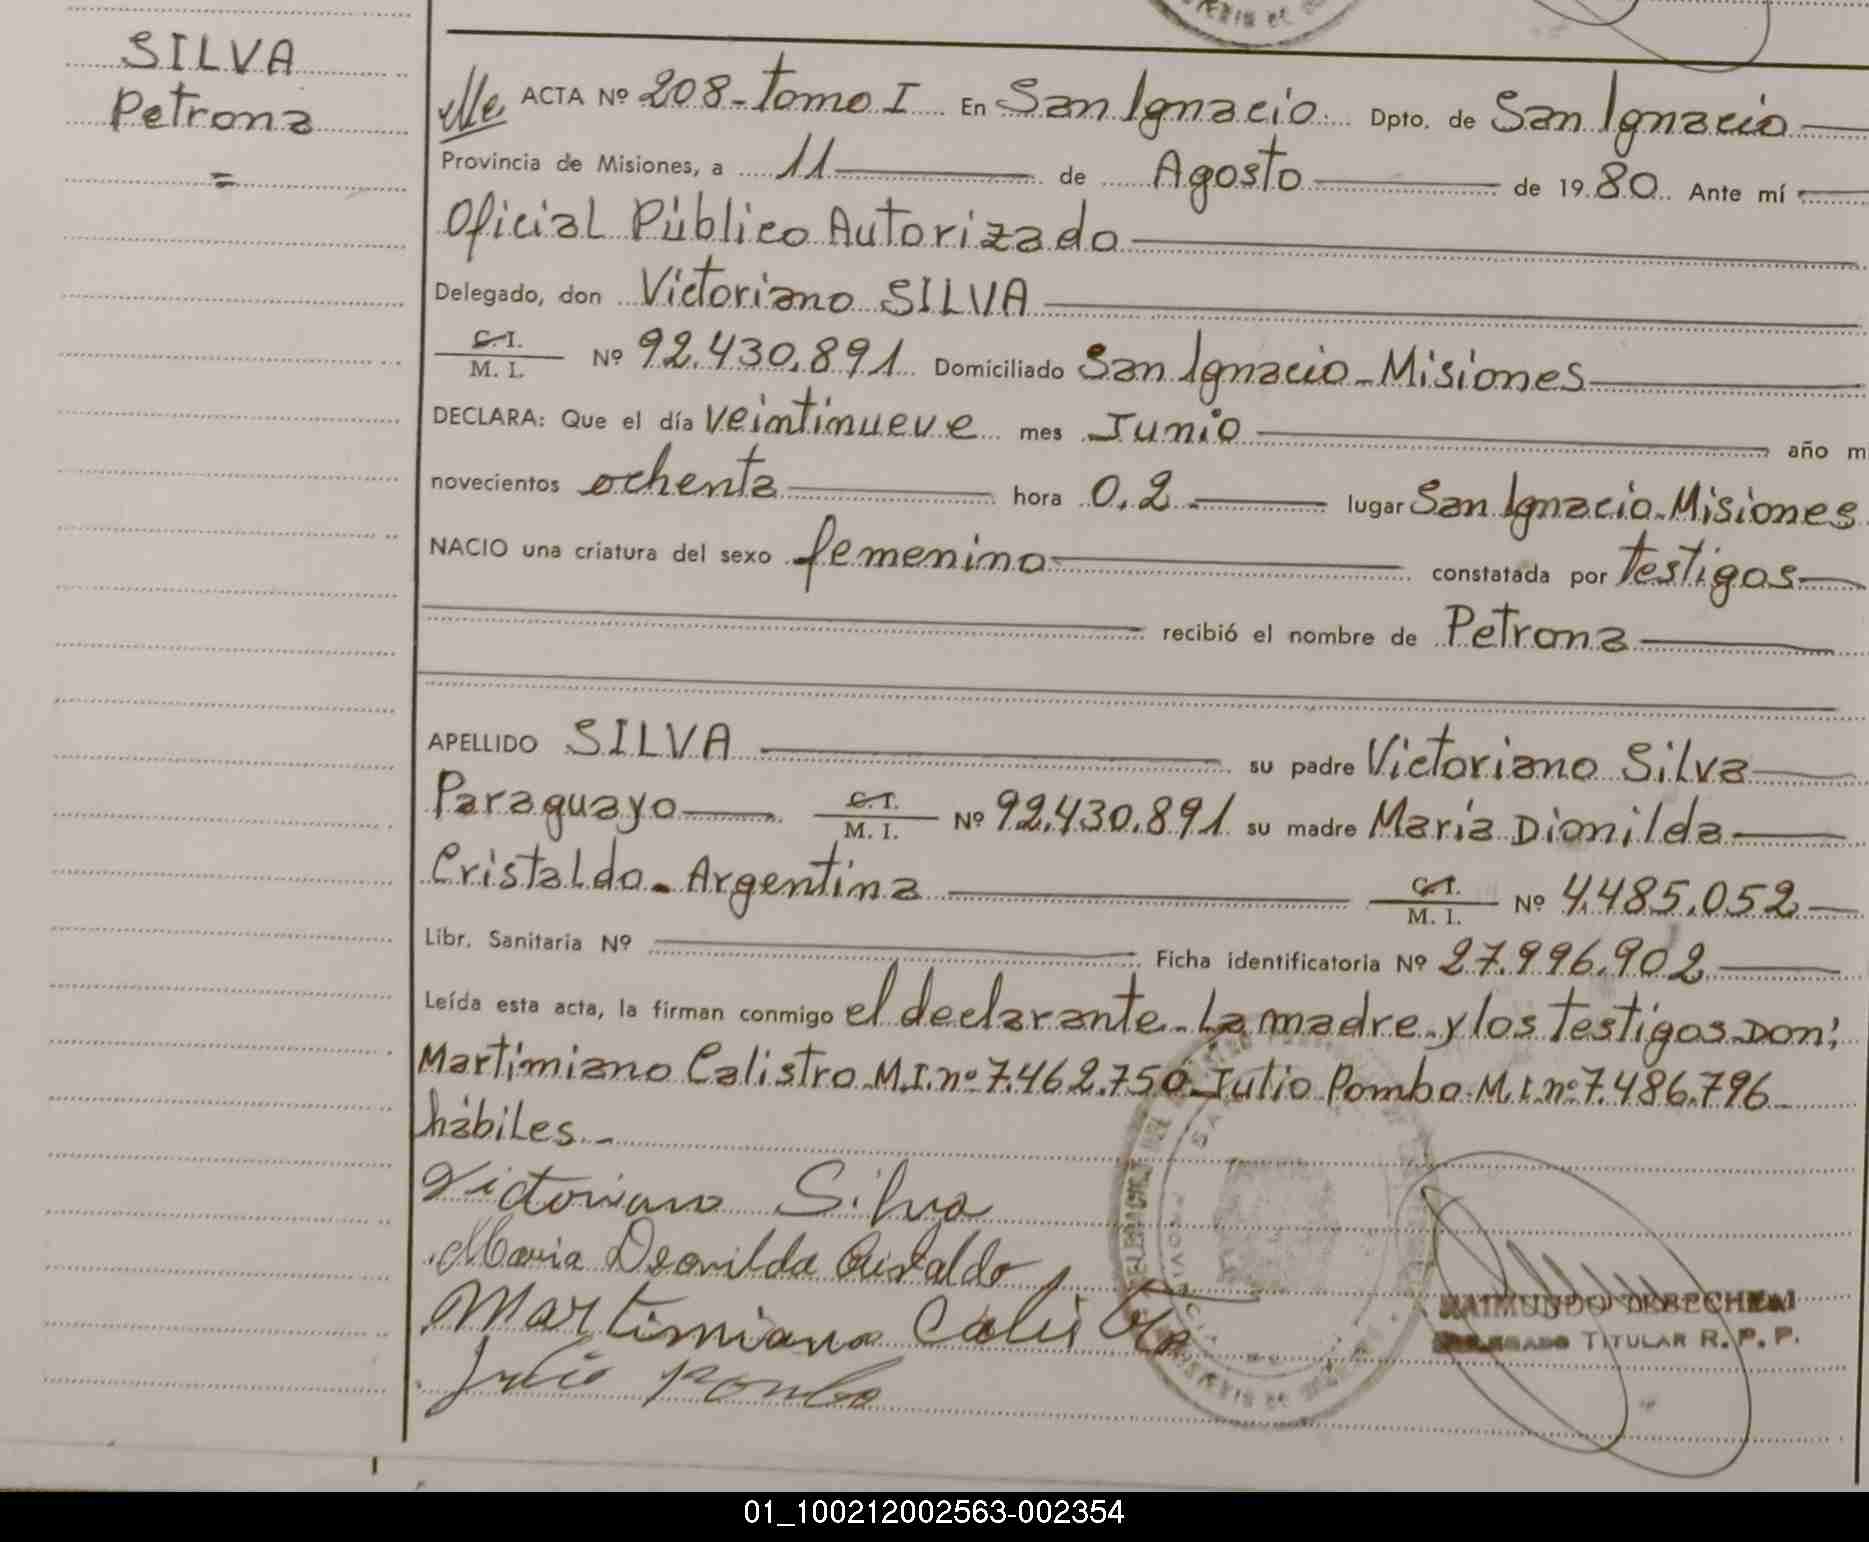 SILVA
Petrona
=
ACTA Nº 208 - tomo I En San Ignacio Dpto. de San Ignacio
Provincia de Misiones, a 11 de Agosto de 1980 Ante mí
Oficial Público Autorizado
Delegado, don Victoriano SILVA
C.I.
M. I. Nº 92.430.891 Domiciliado San Ignacio - Misiones
DECLARA: Que el día veintinueve mes Junio año m
novecientos ochenta hora 0.2 lugar San Ignacio - Misiones
NACIO una criatura del sexo femenino constatada por testigos
recibió el nombre de Petrona
APELLIDO SILVA su padre Victoriano Silva
Paraguayo C.I. M. I. Nº 92.430.891 su madre María Dionilda
Cristaldo - Argentina C.I. M. I. Nº 4.485.052
Libr. Sanitaria Nº Ficha identificatoria Nº 27.996.902
Leída esta acta, la firman conmigo el declarante - La madre - y los testigos - Don;
Martimiano Calistro M.I. nº 7.462.750 Julio Pombo M.I. nº 7.486.796
hábiles. -
Victoriano Silva
Maria Deonilda Cristaldo
Martimiano Calistro
Julio Pombo
RAIMUNDO
DELEGADO TITULAR R. P. P.
01_100212002563-002354